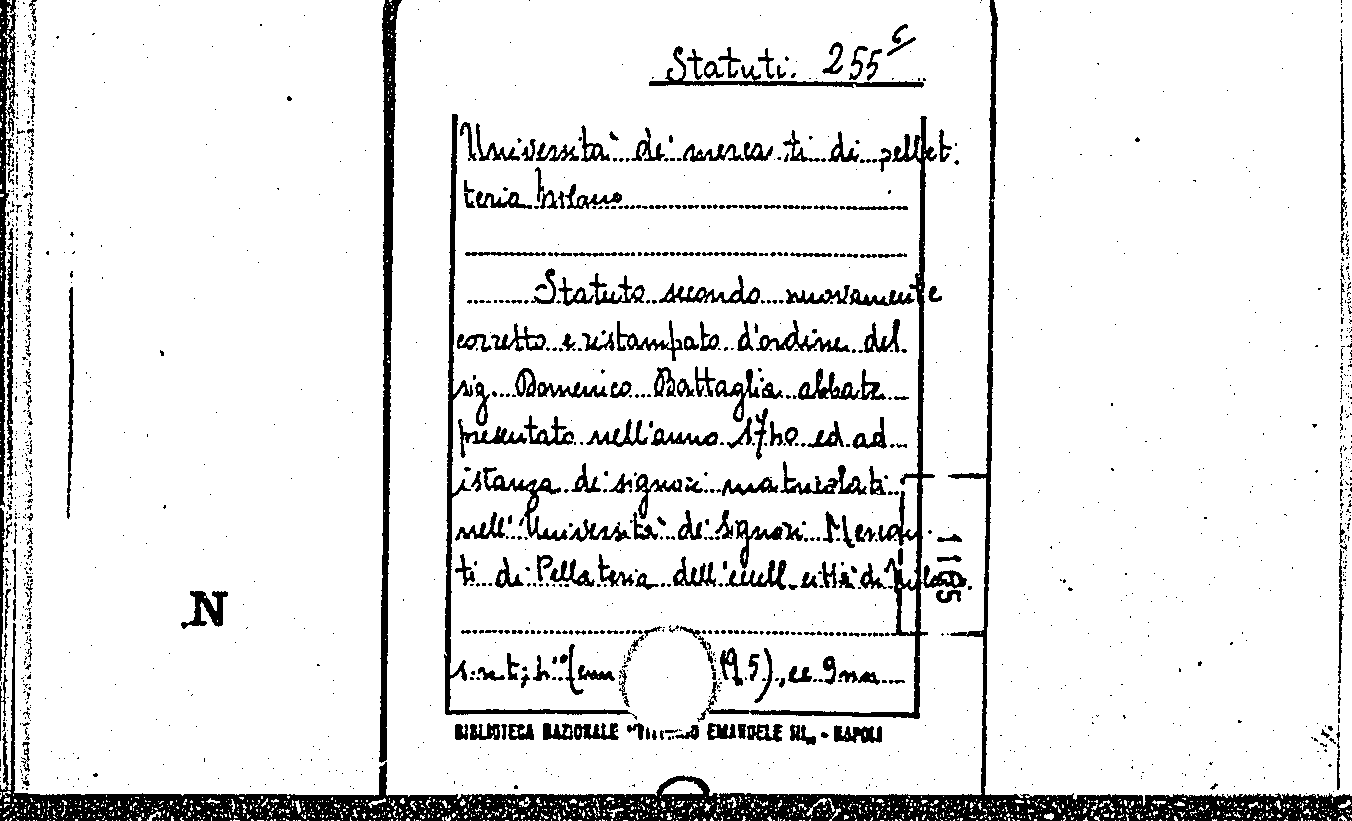 Statuti. 255 c/
Università de' mercanti di pellet.
teria Milano
Statuto secondo nuovamente
corretto e ristampato d'ordine del
sig. Domenico Battaglia abbate
presentato nell'anno 1740 ed ad
istanza de' signori matricolati
nell'Università de' Signori Mercan.
ti di Pellateria dell'eccell. città di Milano.
s.n.t; h° (cm 19,5), cc. 9nn
BIBLIOTECA NAZIONALE "VITTORIO EMANUELE III" - NAPOLI
1195
N